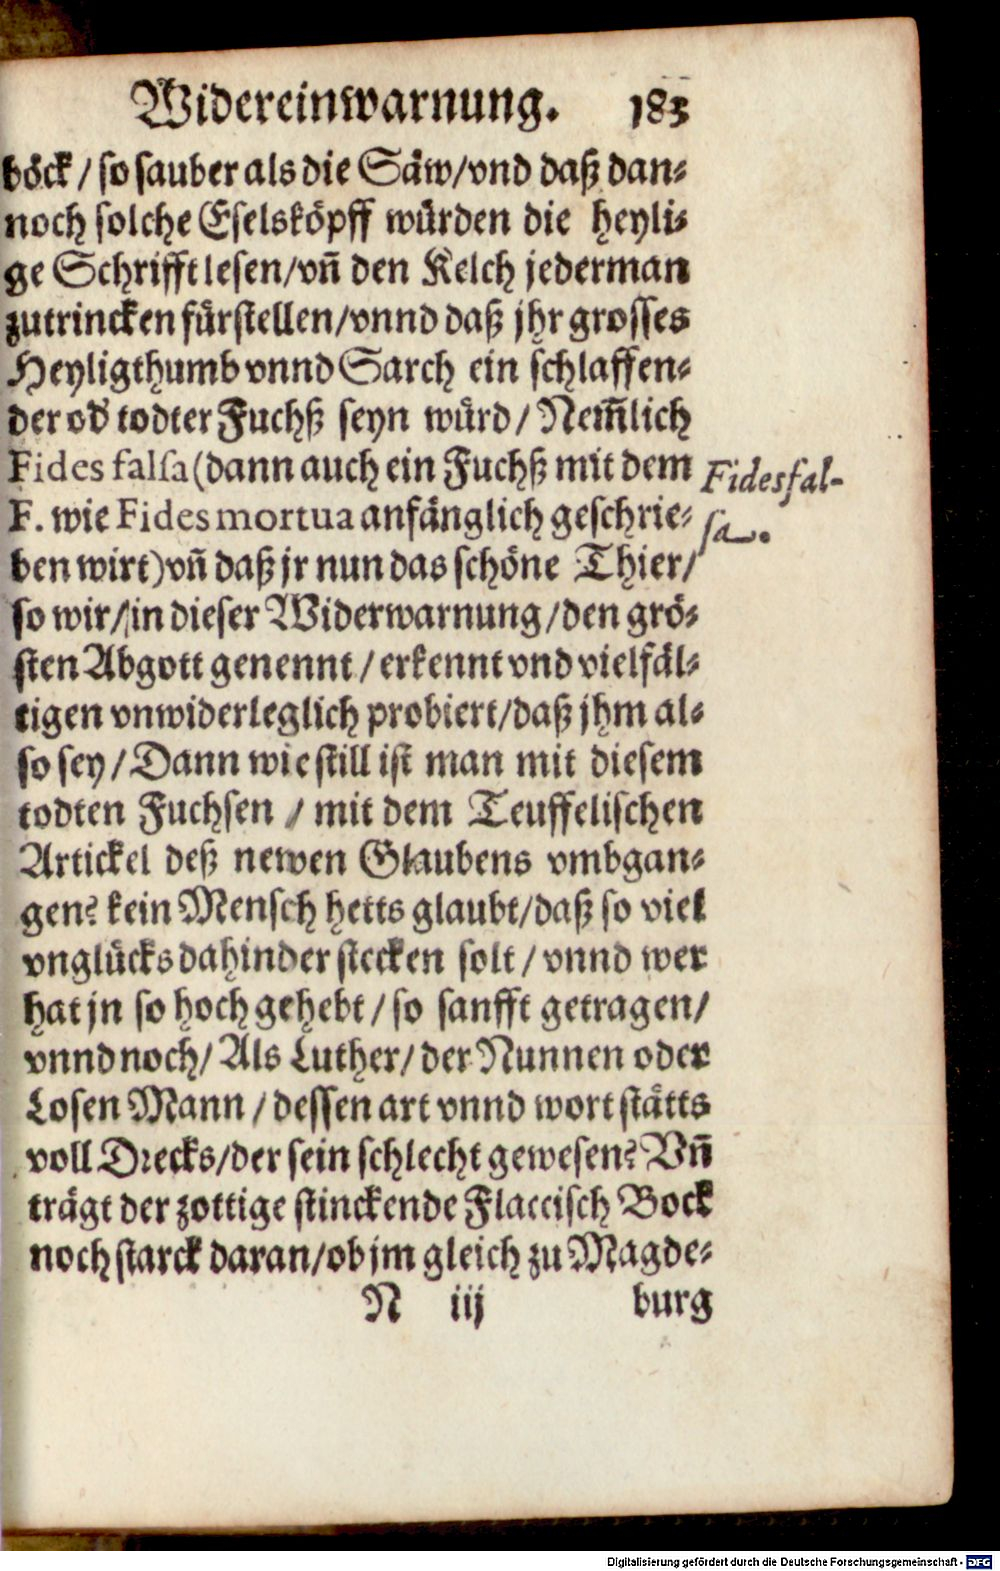 Widereinwarnung. 183
böck / so sauber als die Säw/vnd daß dan-
noch solche Eselsköpff würden die heyli-
ge Schrifft lesen/vñ den Kelch jederman
zutrincken fürstellen/vnnd daß jhr grosses
Heyligthumb vnnd Sarch ein schlaffen-
der od' todter Fuchß seyn würd / Nem̃lich
Fides falsa (dann auch ein Fuchß mit dem
Fides fal-
F. wie Fides mortua anfänglich geschrie-
sa.
ben wirt) vñ daß jr nun das schöne Thier/
so wir/ in dieser Widerwarnung/den grö-
sten Abgott genennt / erkennt vnd vielfäl-
tigen vnwiderleglich probiert/daß jhm al-
so sey / Dann wie still ist man mit diesem
todten Fuchsen / mit dem Teuffelischen
Artickel deß newen Glaubens vmbgan-
gen? kein Mensch hetts glaubt/daß so viel
vnglücks dahinder stecken solt / vnnd wer
hat jn so hoch gehebt / so sanfft getragen/
vnnd noch/ Als Luther/ der Nunnen oder
Losen Mann / dessen art vnnd wort stätts
voll Drecks/der sein schlecht gewesen? Vñ
trägt der zottige stinckende Flaccisch Bock
noch starck daran/ob jm gleich zu Magde-
N iij burg
Digitalisierung gefördert durch die Deutsche Forschungsgemeinschaft - DFG